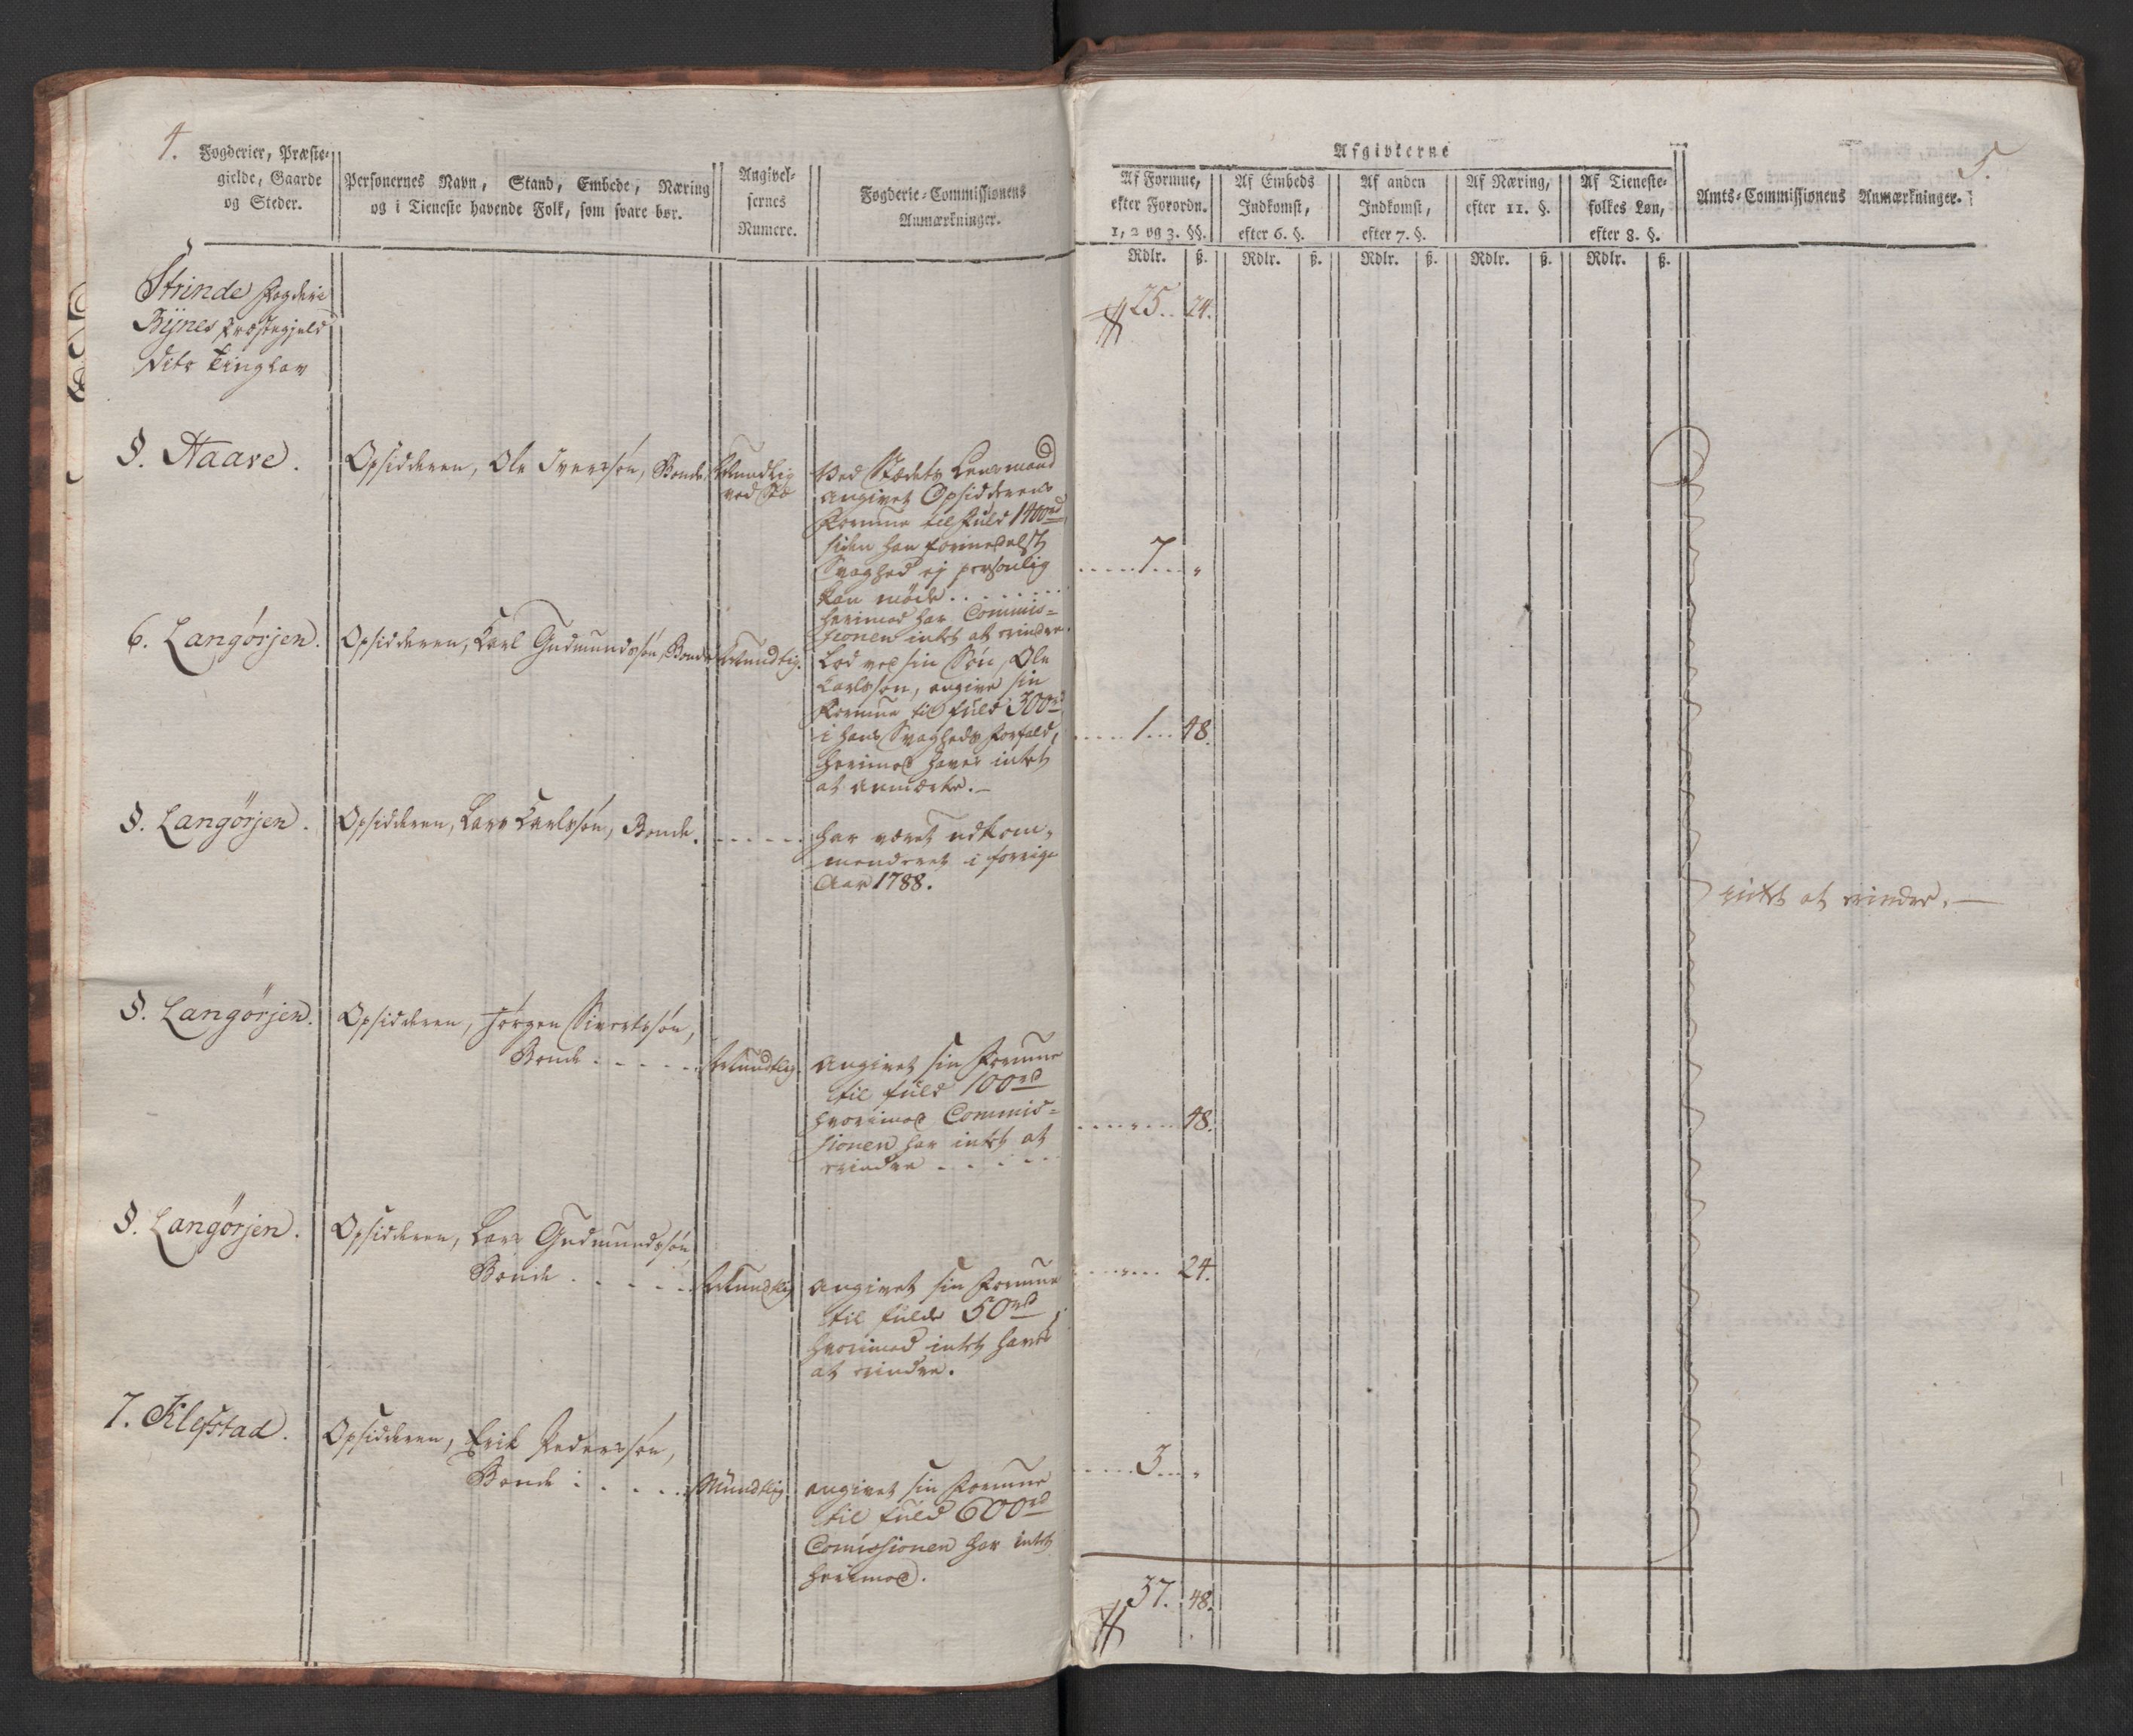 4.
Fogderier, Præste-
gielde, Gaarde
og Steder.
Personernes Navn, Stand, Embede, Næring
og i Tieneste havende Folk, som svare bør.
Angivel-
sernes
Numere.
Fogderie-Commissionens
Anmærkninger.
Strinde Fogderi
Bÿnes Præstegjeld
dito Tinglav
§. Haare.
Opsidderen, Ole Iverssøn, Bonde,
Mundlig
Ved Stædets Lensmand
angivet Opsidderens
Formue til fuld 1400 rd
siden han formedelst
Svaghed ej personlig
kan møde . . . . . . .
herimod har Commis-
sionen intet at erindre.
6. Langørjen.
Opsidderen, Karl Gudmundssøn, Bonde
Mundlig.
Lod ved sin Søn, Ole
Carlssøn, angive sin
Formue til fuld 300 rd
i hans Svagheds Forfald,
herimod haves intet
at anmærke. —
§. Langørjen.
Opsidderen, Lars Carlssøn, Bonde. . . . . .
har været udkom-
menderet i forrige
Aar 1788.
§. Langørjen.
Opsidderen, Jørgen Sivertssøn,
Bonde . . . . .
Mundlig.
angivet sin Formue
til fuld 100 rd
hvorimod Commis-
sionen har intet at
erindre . . . . .
§. Langørjen.
Opsidderen, Lars Gudmundssøn
Bonde . . . . .
Mundlig
angivet sin Formue
til fulde 50 rd,
hvorimod intet haves
at erindre.
7. Klefstad.
Opsidderen, Erik Pederssøn,
Bonde . . . . .
Mundlig
angivet sin Formue
til fuld 600 rd
Comissionen har intet
herimod.
5.
Afgivterne
Af Formue,
efter Forordn.
1, 2 og 3. §§.
Af Embeds
Indkomst,
efter 6. §.
Af anden
Indkomst,
efter 7. §.
Af Næring,
efter 11. §.
Af Tieneste-
folkes Løn,
efter 8. §.
Amts-Commissionens Anmærkninger.
Rdlr. ß. Rdlr. ß. Rdlr. ß. Rdlr. ß. Rdlr. ß.
25. 24.
7 „
1 48.
intet at erindre. —
„ 48.
„ 24.
3 „
37. 48.